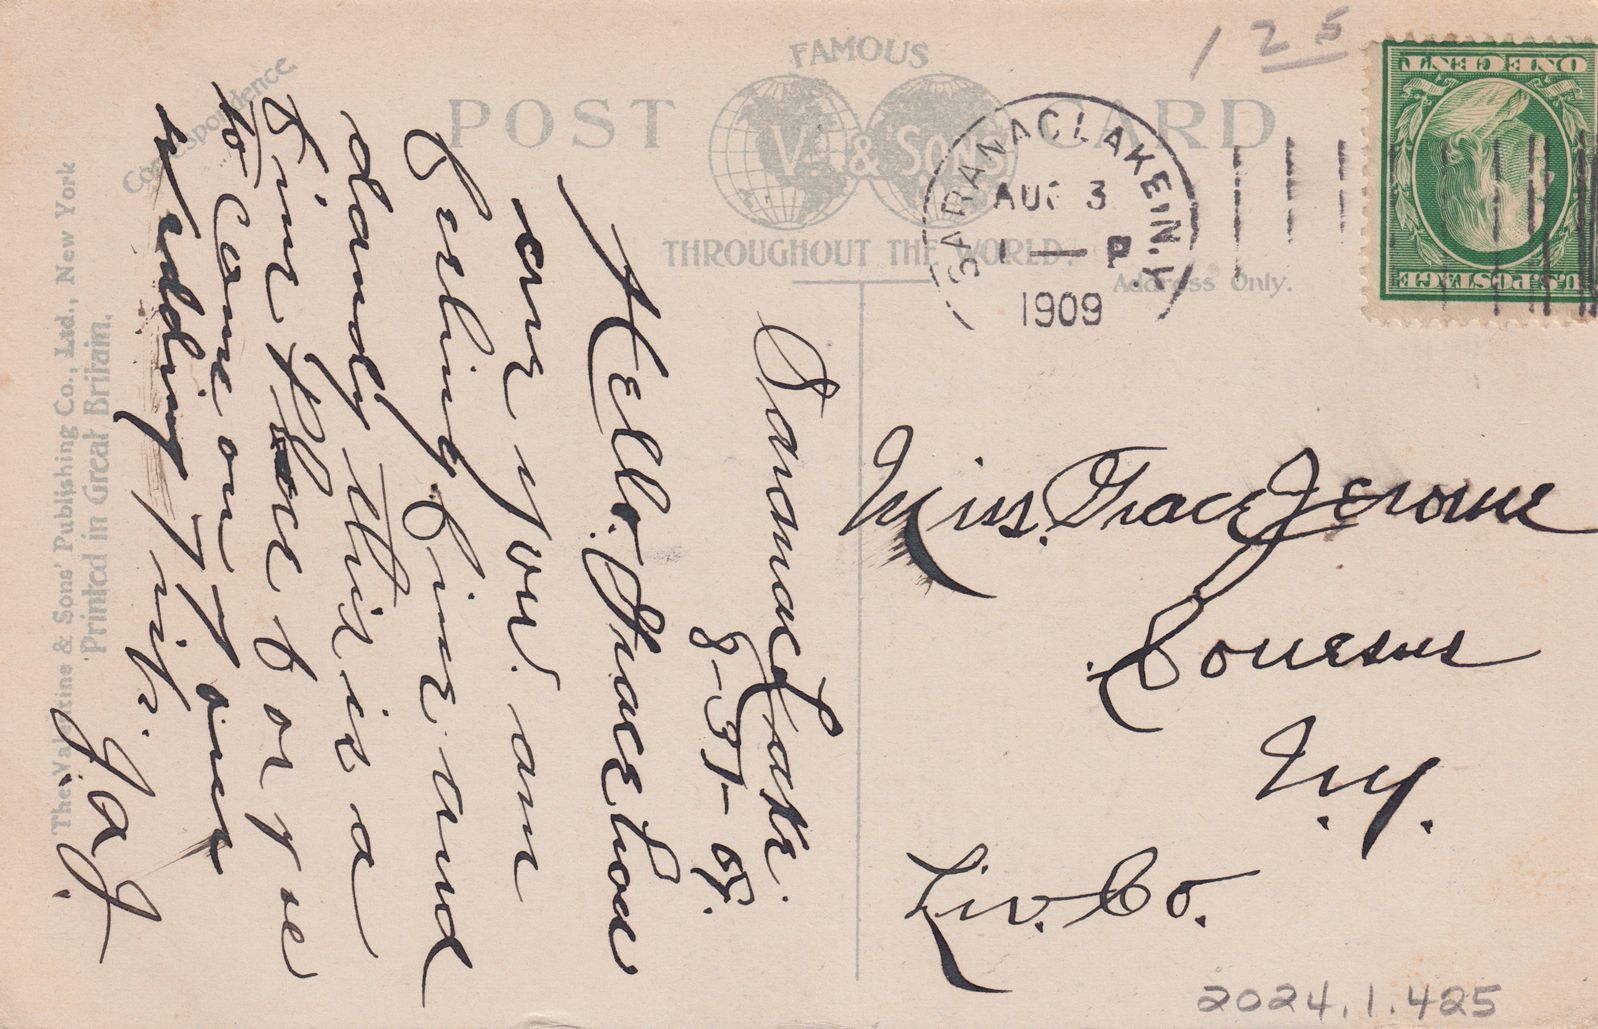 FAMOUS
POST CARD
V. & SONS
THROUGHOUT THE WORLD.
Correspondence
Address Only.
The Valentine & Sons' Publishing Co., Ltd., New York
Printed in Great Britain.
1 25
SARANAC LAKE, N.Y.
AUG 3
1 — P
1909
U.S. POSTAGE
ONE CENT
Saranac Lake.
8-3 - 09.
Hello. Grace how
are you. am
feeling fine and
dandy this is a
fine place for you
to come on your
wedding
J. a. J.
Miss. Grace Jerome
Conesus
N.Y.
Liv. Co.
2024.1.425